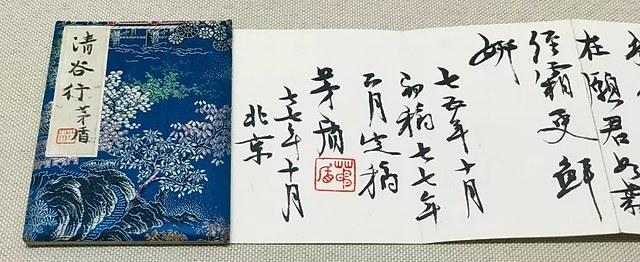 清谷行
茅盾
在願君如
經霜更鮮
妍
七五年十月
初稿七七年
月定稿
茅盾
茅盾
七七年十月
北京